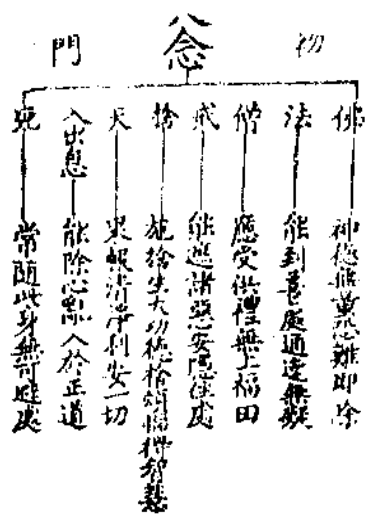 初 八念 門
佛 神德無量難即除
法 能到善處通達無礙
僧 應受供禮無上福田
戒 能遮諸惡安隱住處
捨 施捨生大功德捨煩惱得智慧
天 果報清淨利安一切
入出息 能除心亂入於正道
死 常隨此身無可避處